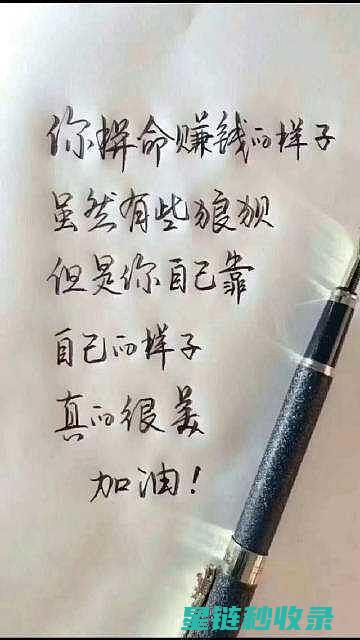 你拼命赚钱的样子
虽然有些狼狈
但是你自己靠
自己的样子
真的很美
加油!
星链秒收录